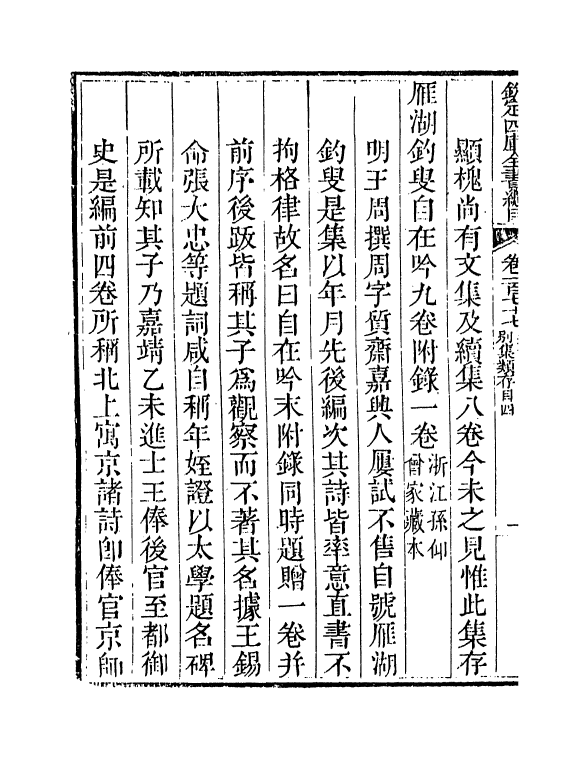 欽定四庫全書總目 卷一百七十七 別集類存目四 一
顯槐尚有文集及續集八卷今未之見惟此集存
雁湖釣叟自在吟九卷附錄一卷 浙江孫仰曾家藏本
明王周撰周字質齋嘉興人屢試不售自號雁湖
釣叟是集以年月先後編次其詩皆率意直書不
拘格律故名曰自在吟末附錄同時題贈一卷并
前序後跋皆稱其子爲觀察而不著其名據王錫
命張大忠等題詞咸自稱年姪證以太學題名碑
所載知其子乃嘉靖乙未進士王俸後官至都御
史是編前四卷所稱北上寓京諸詩卽俸官京師